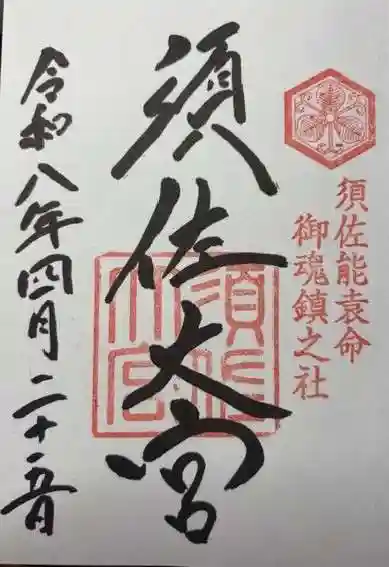 須佐能袁命
御魂鎮之社
須佐大宮
須佐大宮
令和八年四月二十五日